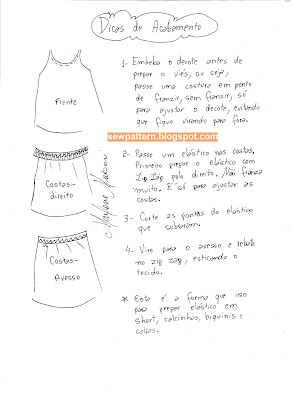 Dicas de Acabamento
Frente
1- Embeba o decote antes de
prepar o viés, ou seja,
passe uma costura em ponto
de franzir, sem franzir, só
para ajustar o decote, evitando
que fique virando para fora.
sewpattern.blogspot.com
Costas-
direito
2- Passe um elástico nas costas.
Primeiro pregue o elástico com
Zig Zag pelo direito. Não franza
muito. É só para ajustar as
costas.
3- Corte as pontas do elástico
que sobraram.
Costas-
Avesso
4- Vire para o avesso e rebata
no zig zag, esticando o
tecido.
* Esta é a forma que uso
para pregar elástico em
short, calcinhas, biquinis e
calças.